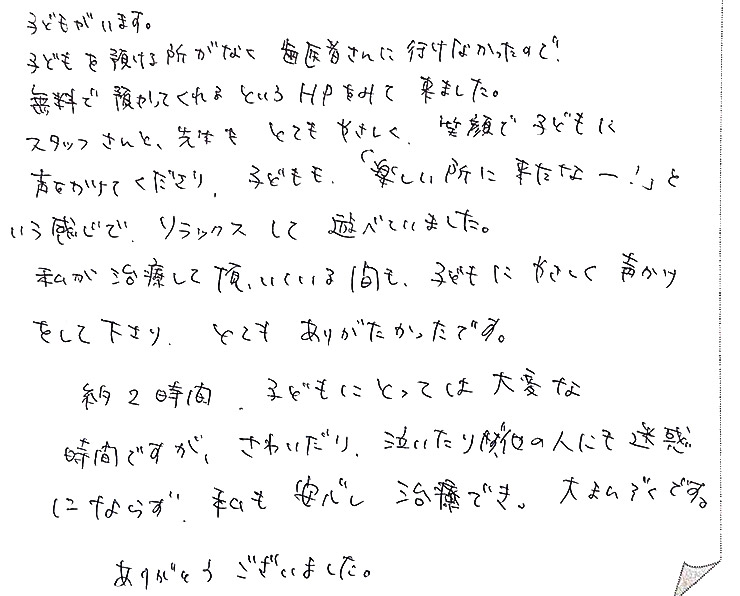 子どもがいます。
子どもを預ける所がなく 歯医者さんに行けなかったので、
無料で預かってくれるというHPをみて来ました。
スタッフさんと、先生も とてもやさしく、笑顔で子どもに
声をかけてくださり、子どもも、「楽しい所に来たなー!」と
いう感じで、リラックスして遊べていました。
私が治療して頂いている間も、子どもにやさしく声かけ
をして下さり、とてもありがたかったです。
約2時間、子どもにとっては大変な
時間ですが、さわいだり、泣いたり 他の人にも迷惑
にならず、私も安心し治療でき。大まんぞくです。
ありがとうございました。